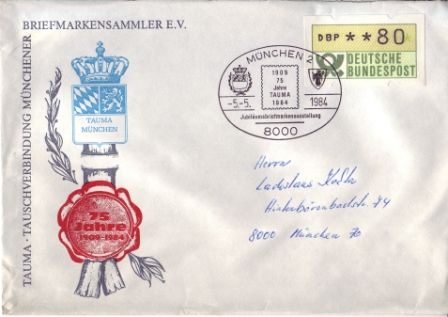 TAUMA · TAUSCHVERBINDUNG MÜNCHENER BRIEFMARKENSAMMLER E.V.
TAUMA
MÜNCHEN
75
Jahre
1909-1984
MÜNCHEN 2
1909
75
Jahre
TAUMA
1984
-5.-5. 1984
Jubiläumsbriefmarkenausstellung
8000
DBP **80
DEUTSCHE
BUNDESPOST
Herrn
Ladislaus
8000 München 70